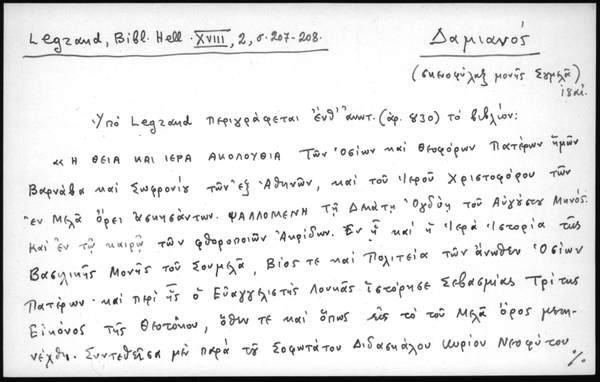 Legrand, Bibl. Hell. XVIII, 2, σ. 207-208.
Δαμιανός
(σκευοφύλαξ μονῆς Σουμελᾶ)
18 αἰ.
Ὑπὸ Legrand περιγράφεται ἐνθ' ἀνωτ. (ἀρ. 830) τὸ βιβλίον:
« Η ΘΕΙΑ ΚΑΙ ΙΕΡΑ ΑΚΟΛΟΥΘΙΑ Τῶν Ὁσίων καὶ Θεοφόρων Πατέρων ἡμῶν
Βαρνάβα καὶ Σωφρονίου τῶν ἐξ Ἀθηνῶν, καὶ τοῦ Ἱεροῦ Χριστοφόρου τῶν
ἐν Μελᾶ ὄρει ἀσκησάντων. ΨΑΛΛΟΜΕΝΗ τῇ Δεκάτῃ Ὀγδόῃ τοῦ Αὐγούστου Μηνός.
Καὶ ἐν τῷ καιρῷ τῶν φθοροποιῶν Ἀκρίδων. Ἐν ᾗ καὶ ἡ Ἱερὰ Ἱστορία τῆς
Βασιλικῆς Μονῆς τοῦ Σουμελᾶ, Βίος τε καὶ Πολιτεία τῶν ἄνωθεν Ὁσίων
Πατέρων· καὶ περὶ ἧς ὁ Εὐαγγελιστὴς Λουκᾶς ἱστόρησε Σεβασμίας Τρίτης
Εἰκόνος τῆς Θεοτόκου, ὅθεν τε καὶ ὅπως εἰς τὸ τοῦ Μελᾶ ὄρος μετη-
νέχθη. Συντεθεῖσα μὲν παρὰ τοῦ Σοφωτάτου Διδασκάλου Κυρίου Νεοφύτου
%